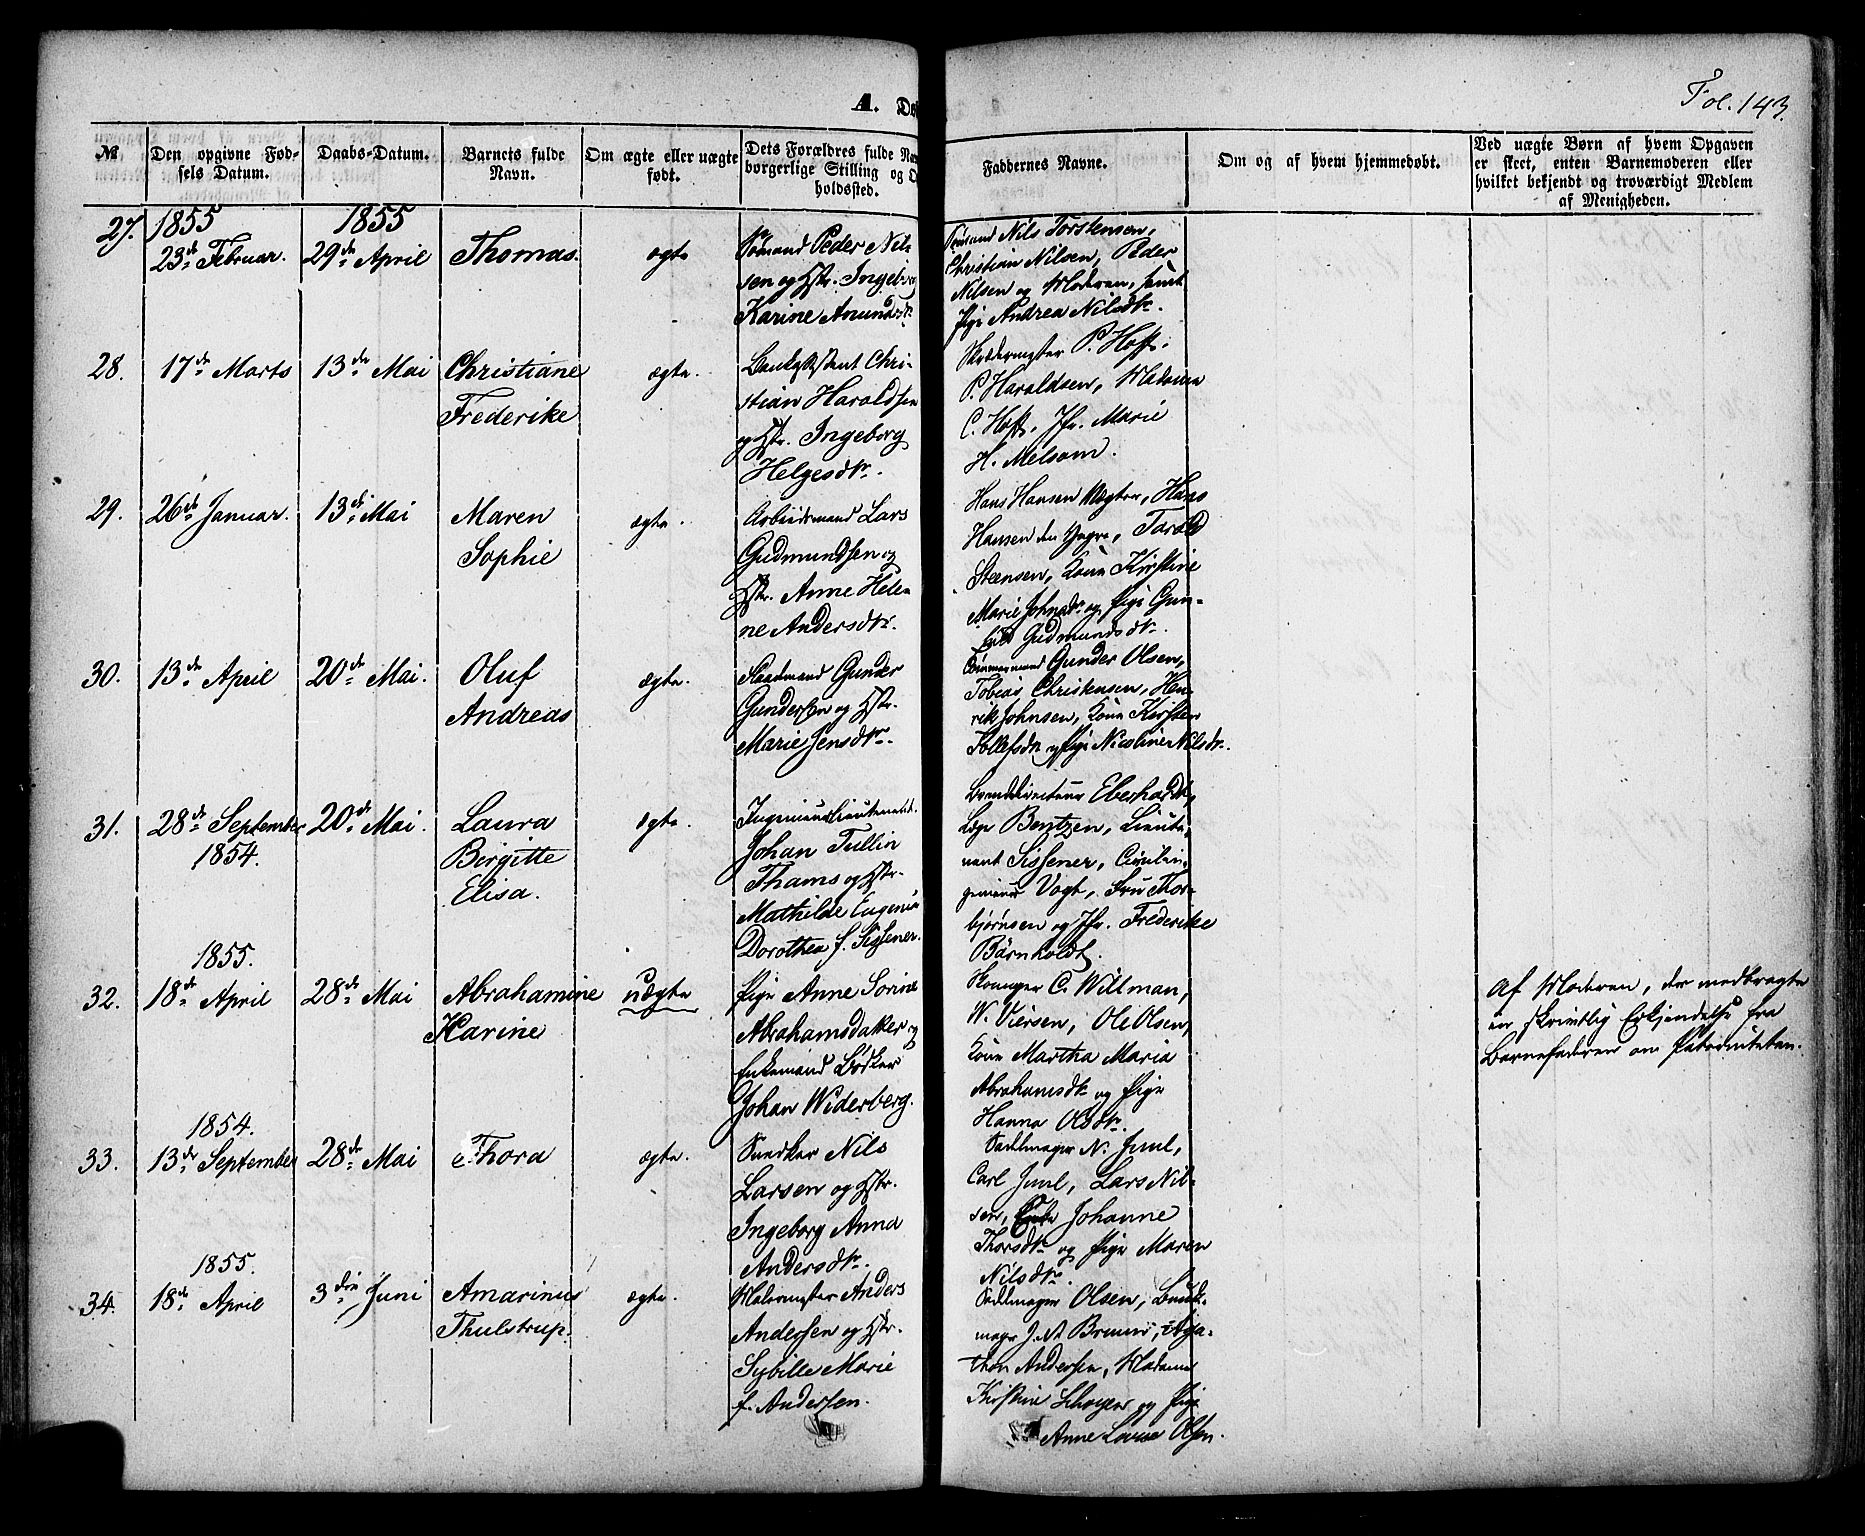 Fol. 143.
A. Dø
No
Den opgivne Fød-
sels Datum.
Daabs-Datum.
Barnets fulde
Navn.
Om ægte eller uægte
født.
Dets Forældres fulde Nav
borgerlige Stilling og O
holdssted.
Faddernes Navne.
Om og af hvem hjemmedøbt.
Ved uægte Børn af hvem Opgaven
er skeet, enten Barnemoderen eller
hvilket bekjendt og troværdigt Medlem
af Menigheden.
27. 1855 1855
23de Februar. 29de April Thomas. ægte
Sømand Peder Nil-
sen og Hstr. Ingeborg
Karine Amundsdtr
Sømand Nils Torstensen,
Christian Nilsen, Peder
Nilsen og Moderen, samt
Pige Andrea Nilsdtr.
28. 17de Marts 13de Mai Christiane ægte.
Frederike
Chri-
stian Haroldsen
og Hstr. Ingeborg
Helgesdtr.
Skrædermester P. Hoff.
P. Haroldsen, Madame
C. Hoff, Jfr. Marie
H. Melsom.
29. 26de Januar. 13de Mai Maren ægte.
Sophie
Arbeidsmand Lars
Gudmundsen og
Hstr. Anne Hele-
ne Andersdtr.
Hans Hansen Vægter, Hans
Hansen den Yngre, Tarald
Steensen, Kone Kirstine
Marie Johnsdtr og Pige Gun-
Gudmundsdtr.
30. 13de April 20de Mai. Oluf ægte.
Andreas
Gunder
Gundersen og Hstr.
Marie Jensdtr.
Gunder Olsen,
Tobias Christensen, Hen-
rik Johnsen, Kone Kirsten
Tollefsdtr og Pige Nicoline Nilsdtr.
31. 28de September 20de Mai. Laura ægte.
1854. Birgitte
Elisa.
Ingenieurlieutenant
Johan Tullin
Thams og Hstr.
Mathilde Eugenia
Dorothea f. Sissener.
Branddirecteur Eberhardt,
Læge Bentzen, Lieute-
nant Sissener, Civilin-
genieur Vogt, Fru Thor-
bjørnsen og Jfr. Frederike
Børnholdt.
1855.
32. 18de April 28de Mai Abrahamine uægte
Karine
Pige Anne Sorine
Abrahamsdatter og
Enkemand Bødker
Johan Widerberg.
C. Willman,
W. Viersen, Ole Olsen,
Kone Martha Maria
Abrahamsdtr og Pige
Hanna Olsdtr.
Af Moderen, der medbragte
en skrivtlig Erkjendelse fra
Barnefaderen om Paterniteten.
1854.
33. 13de September 28de Mai Thora ægte.
Snedker Nils
Larsen og Hstr.
Ingeborg Anna
Andersdtr.
Sadlmager N. Juul,
Carl Juul, Lars Nil-
sen, Enke Johanne
Thorsdtr og Pige Maren
Nilsdtr.
1855.
34. 18de April 3die Juni Amarinus ægte.
Thulstrup.
Malermester Anders
Andersen og Hstr.
Sybille Marie
f. Andersen.
Sadlmager Olsen,
Bruun, Aga-
thon Andersen, Madame
Kirstine og Pige
Anne Lovise Olsen.